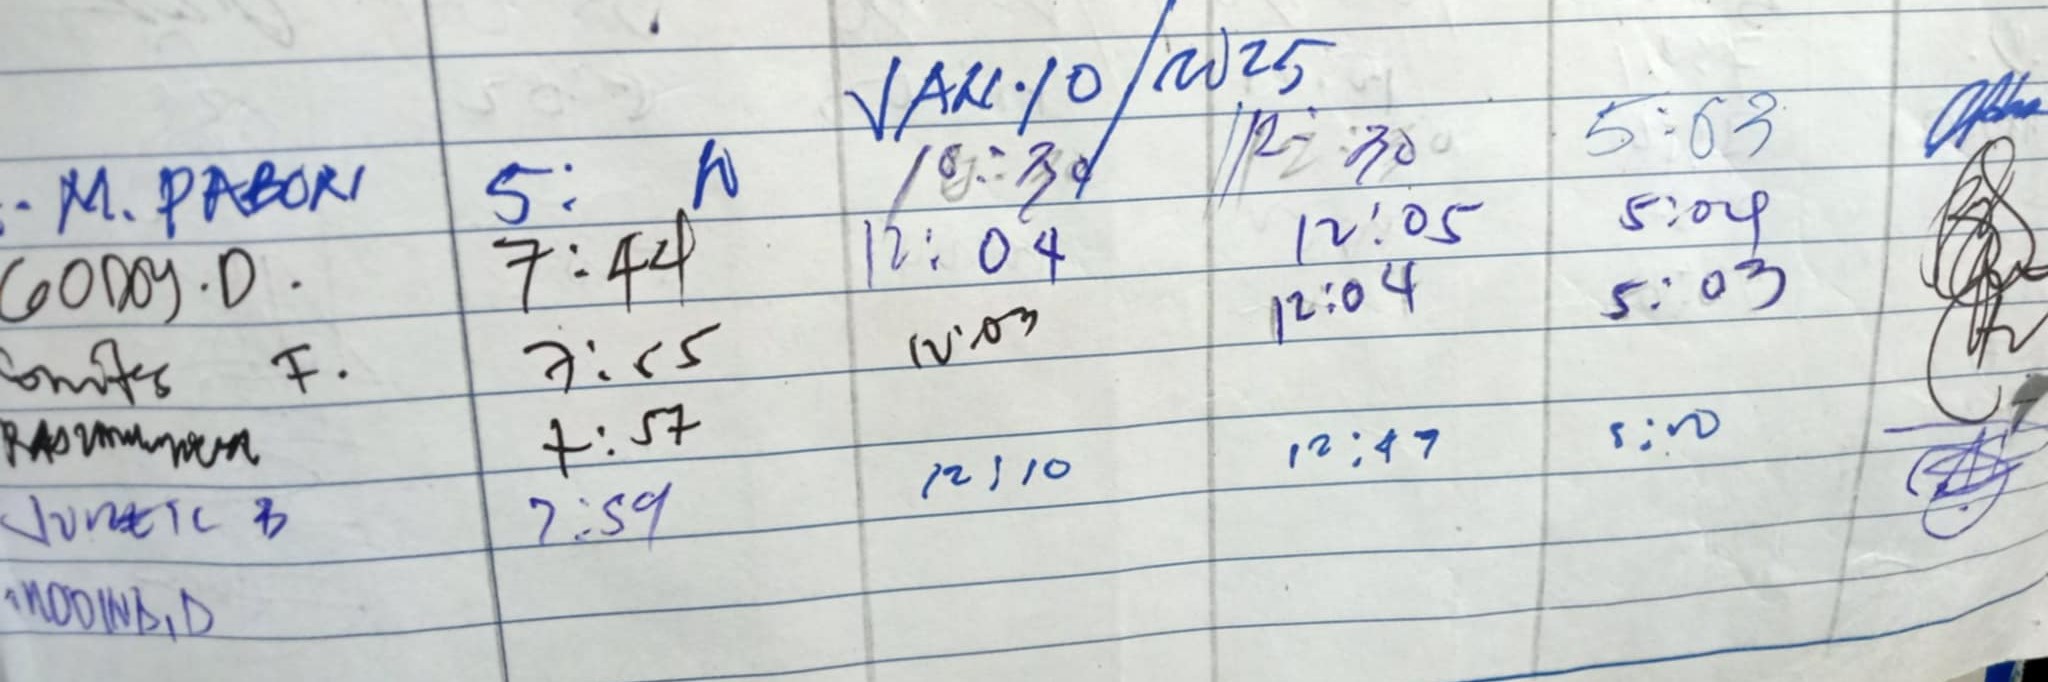 JAN.10/2025
M. PABORI 5: 10 12:30 5:03
GODOY.D. 7:44 12:04 12:05 5:04
F. 7:55 12:03 12:04 5:03
7:57
JUNETIC B 7:59 12:10 12:47 5:10
MODINA,D